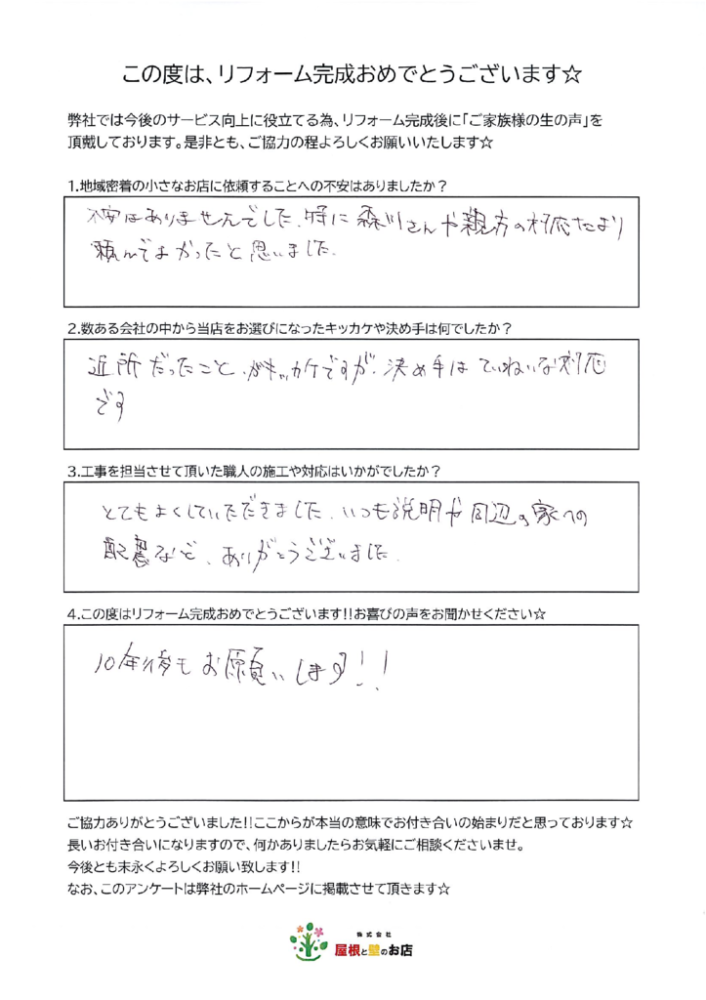 この度は、リフォーム完成おめでとうございます☆
弊社では今後のサービス向上に役立てる為、リフォーム完成後に「ご家族様の生の声」を
頂戴しております。是非とも、ご協力の程よろしくお願いいたします☆
1.地域密着の小さなお店に依頼することへの不安はありましたか?
不安はありませんでした。特に森川さんや親方の対応により
頼んでよかったと思いました。
2.数ある会社の中から当店をお選びになったキッカケや決め手は何でしたか?
近所だったこと、がキッカケですが、決め手はていねいな対応
です
3.工事を担当させて頂いた職人の施工や対応はいかがでしたか?
とてもよくしていただきました。いつも説明や周辺の家への
配慮など、ありがとうございました。
4.この度はリフォーム完成おめでとうございます!!お喜びの声をお聞かせください☆
10年後もお願いします!!
ご協力ありがとうございました!!ここからが本当の意味でお付き合いの始まりだと思っております☆
長いお付き合いになりますので、何かありましたらお気軽にご相談くださいませ。
今後とも末永くよろしくお願い致します!!
なお、このアンケートは弊社のホームページに掲載させて頂きます☆
株式会社
屋根と壁のお店